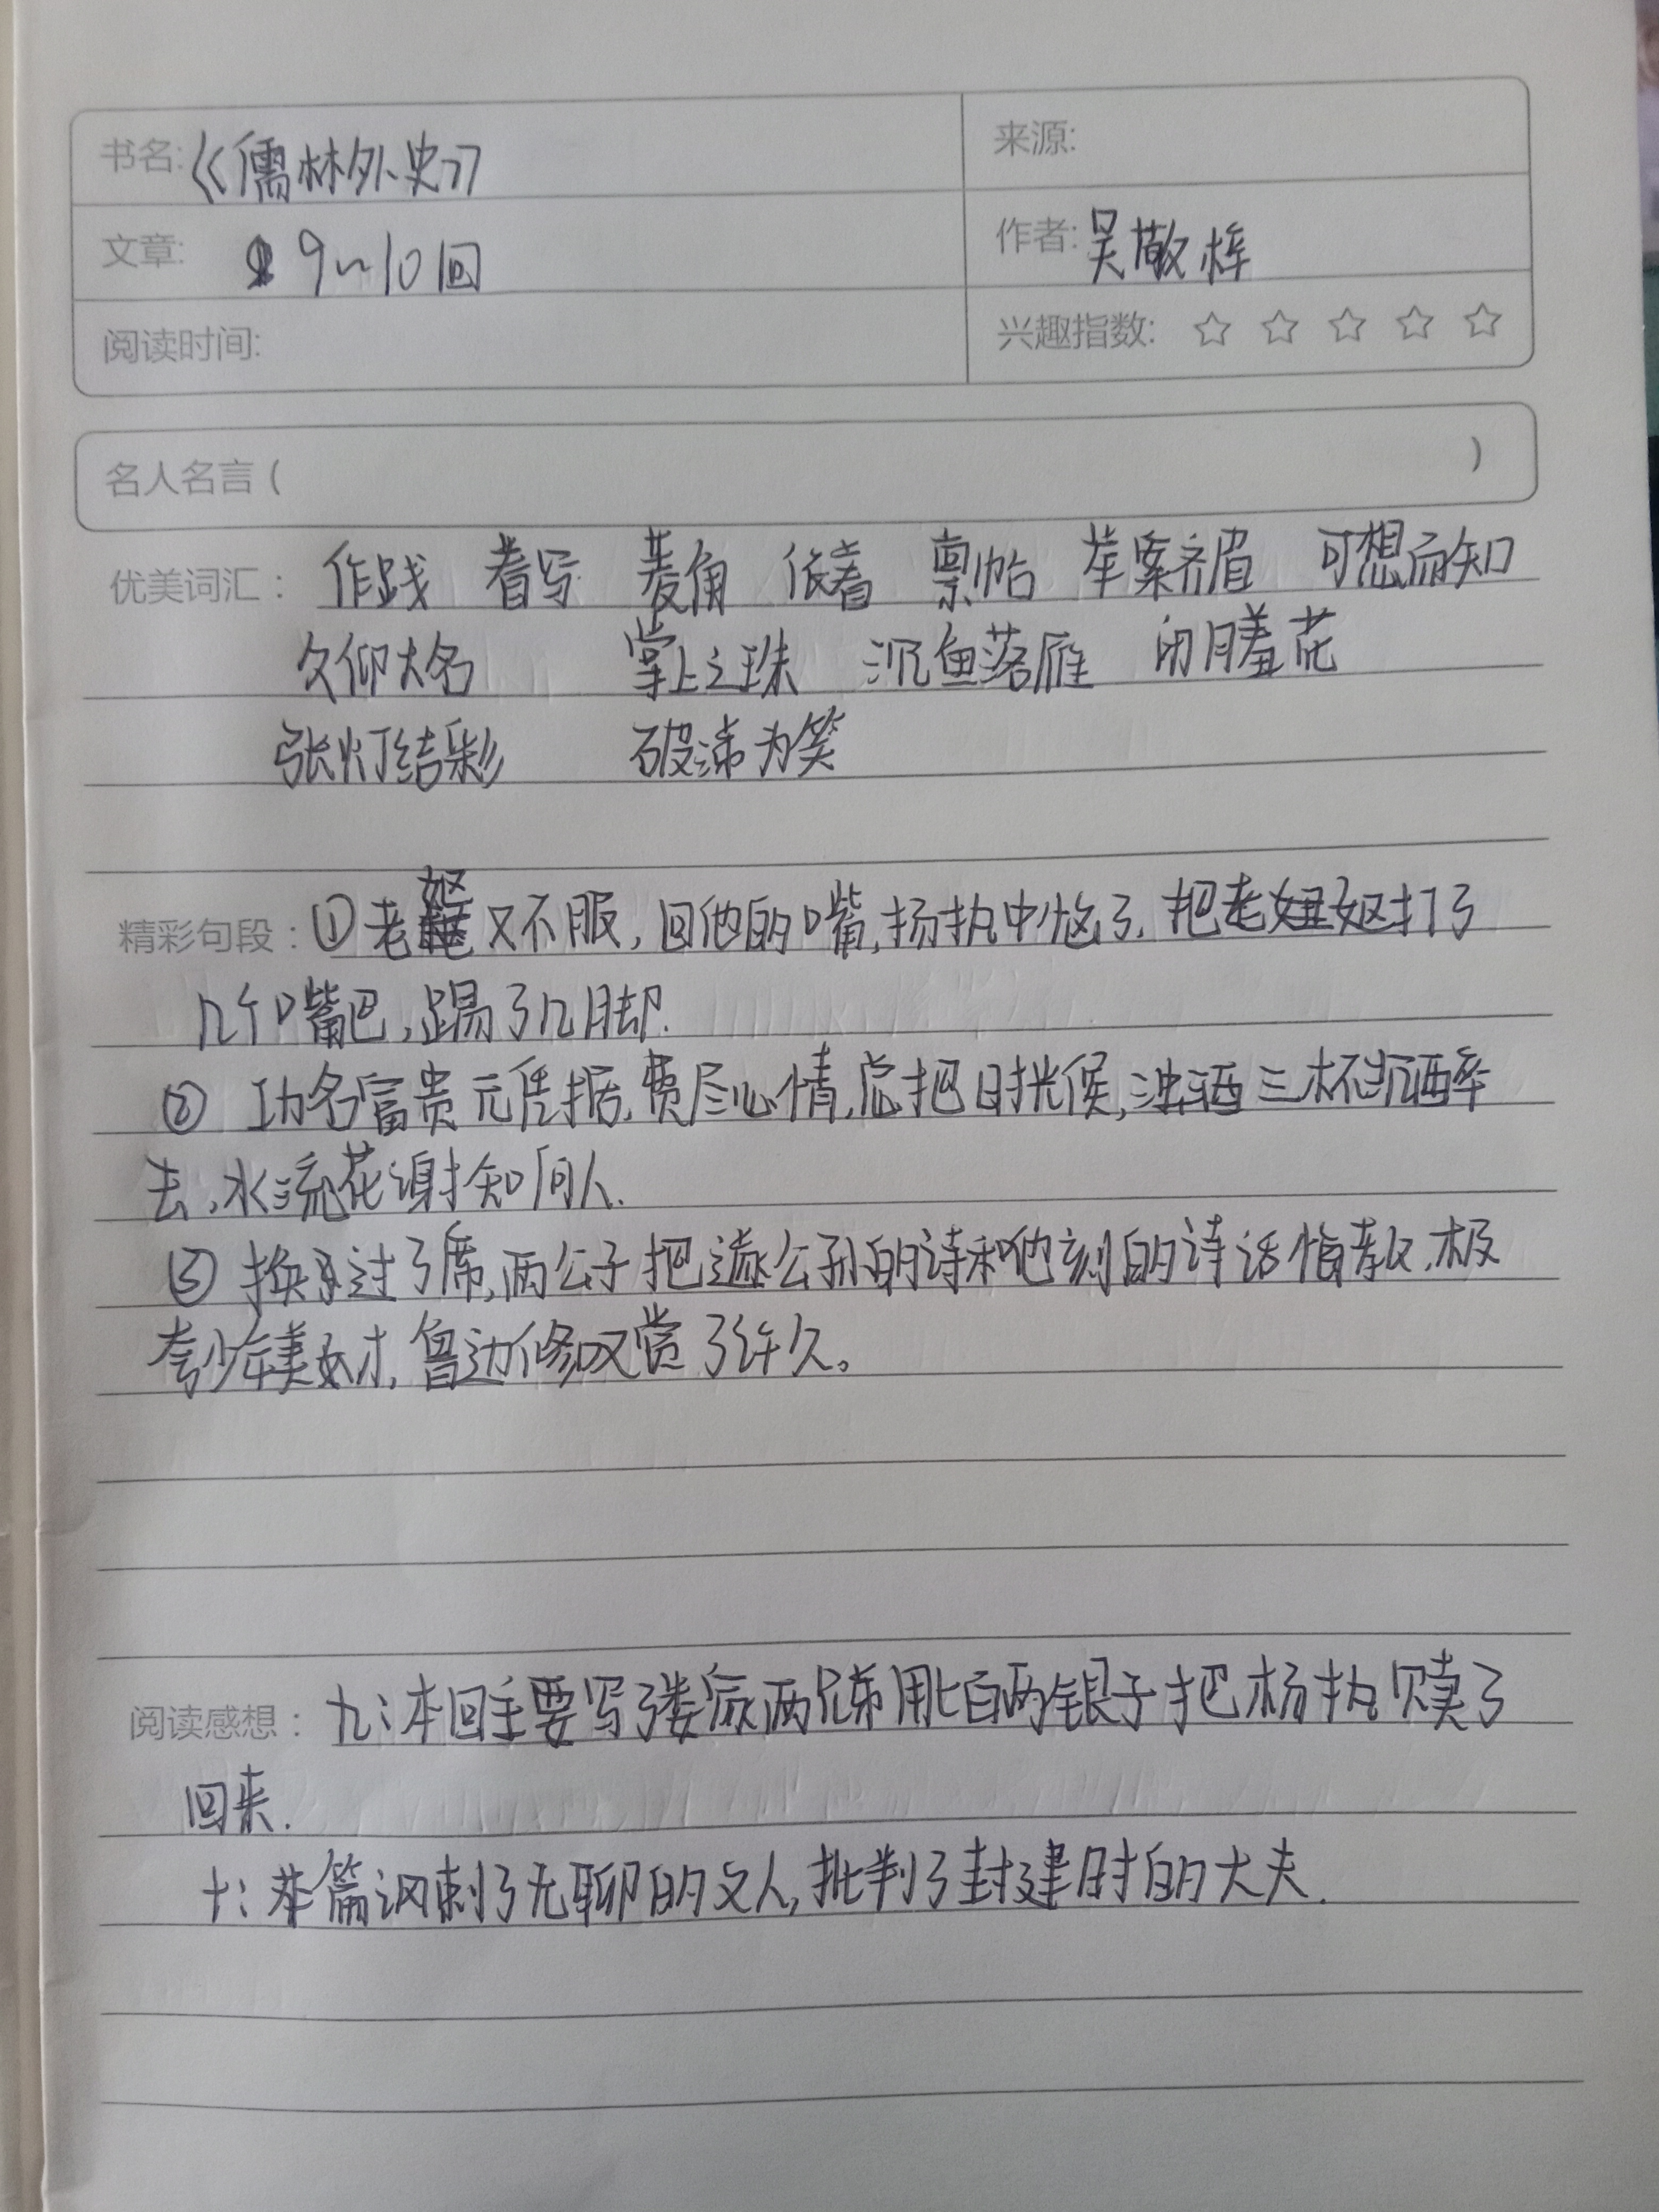 书名:《儒林外史》 来源:
文章: 9~10回 作者:吴敬梓
阅读时间: 兴趣指数: ☆ ☆ ☆ ☆ ☆
名人名言( )
优美词汇: 作践 着写 菱角 依着 禀帖 举案齐眉 可想而知
久仰大名 掌上之珠 沉鱼落雁 闭月羞花
张灯结彩 破涕为笑
精彩句段:①老妪又不服,回他的嘴,杨执中恼了,把老妪打了
几个嘴巴,踢了几脚.
② 功名富贵无凭据,费尽心情,总把日光候,浊酒三杯沉醉
去,水流花谢知何人.
③ 换过了席,两公子把遽公孙的诗和他刻的诗话请教,极
夸少年美才,鲁边修叹赏了许久。
阅读感想: 九:本回主要写了娄家两兄弟用七百两银子把杨执赎了
回来.
十:本篇讽刺了无聊的文人,批判了封建时的大夫.